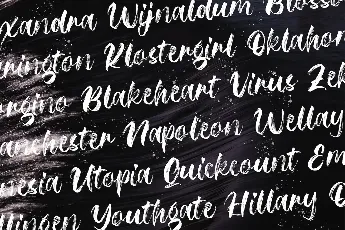 xandra Wijnaldum Blosso
nington Klostergirl Oklahom
orgino Blakeheart Virus Zek
anchester Napoleon Wellay
nesia Utopia Quickcount Em
llingen Youthgate Hillary